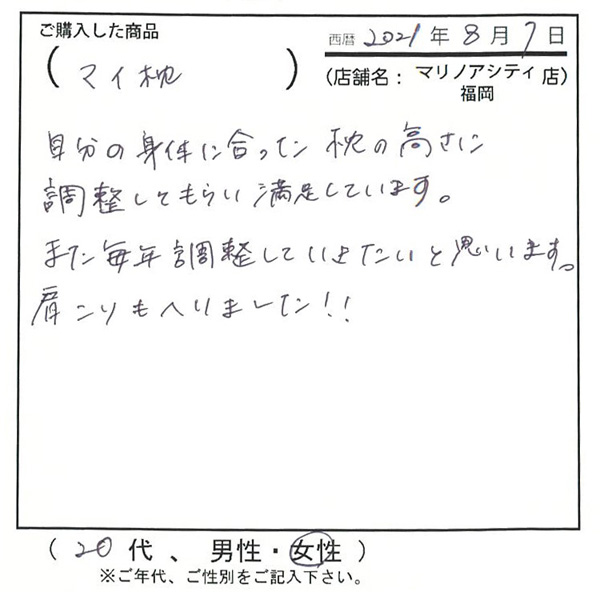 ご購入した商品
(マイ枕)
西暦 2021年8月7日
(店舗名：マリノアシティ福岡 店)
自分の身体に合った枕の高さに
調整してもらい満足しています。
また毎年調整していきたいと思います。
肩こりもへりました!!
(20代、男性・女性)
※ご年代、ご性別をご記入下さい。